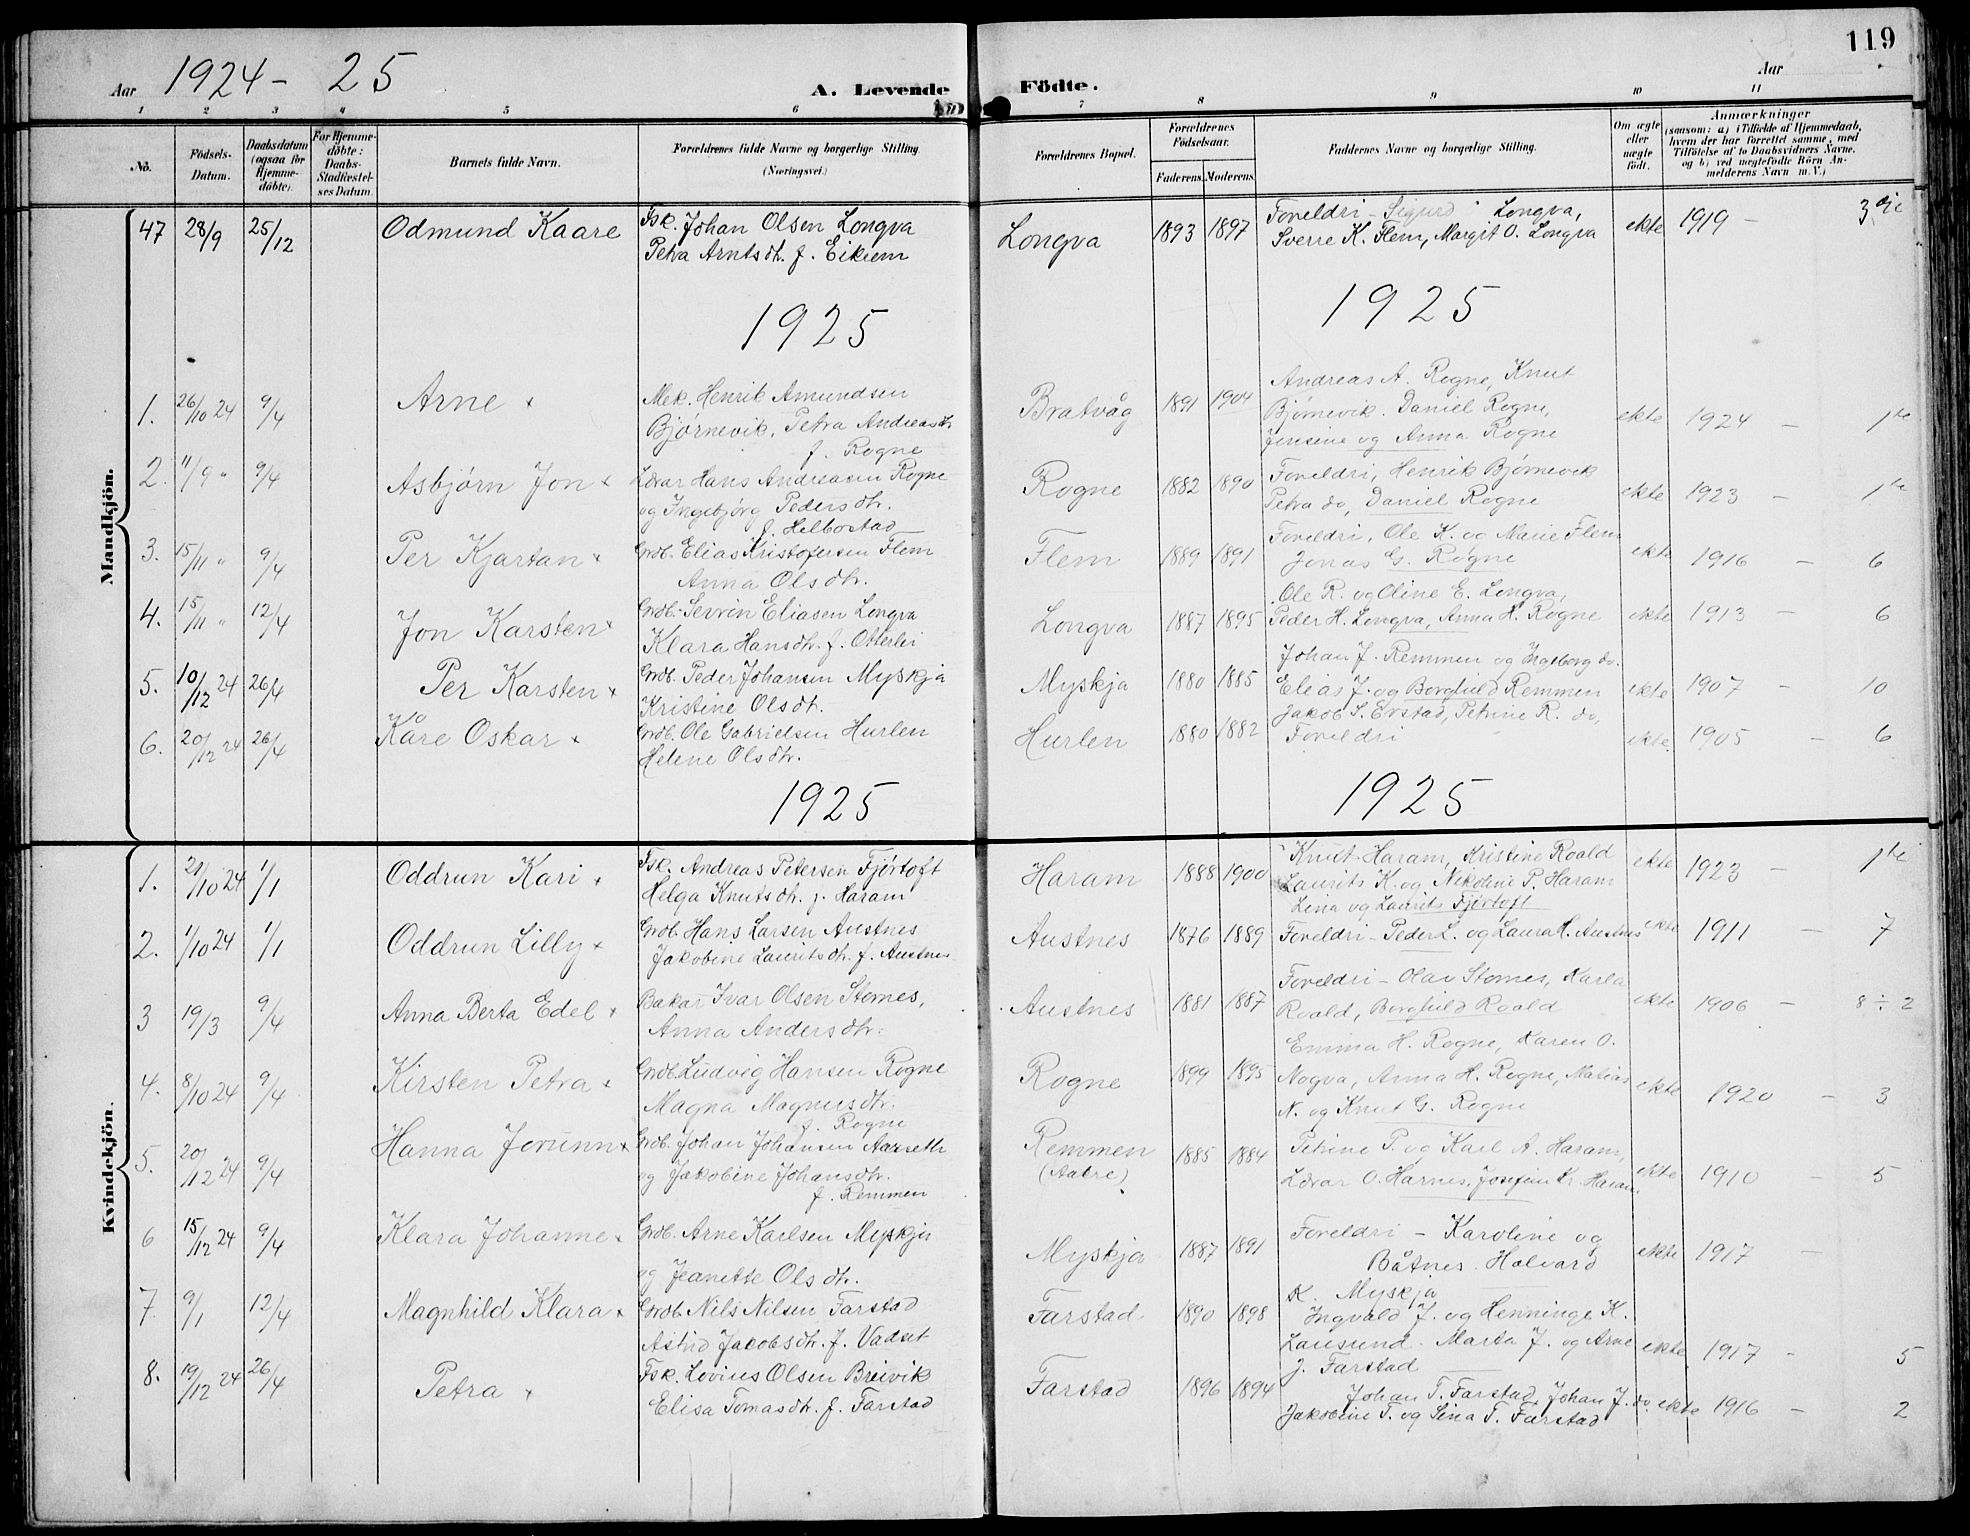 119
Aar 1924 - 25
A. Levende Födte.
Aar
1 2 3 4 5 6 7 8 9 10 11
No.
Födsels-Datum.
Daabsdatum (ogsaa för Hjemmedöbte).
For Hjemmedöbte: Daabs-Stadfæstelses Datum.
Barnets fulde Navn.
Forældrenes fulde Navne og borgerlige Stilling.
(Næringsvei.)
Forældrenes Bopæl.
Forældrenes Födselsaar.
Faderens. Moderens.
Faddernes Navne og borgerlige Stilling.
Om ægte eller uægte födt.
Anmærkninger
(saasom: a) i Tilfælde af Hjemmedaab,
hvem der har forrettet samme, med
Tilföielse af to Daabsvidners Navne.
og b) ved uægtefödte Börn Anmelderens Navn m. V.)
Mandkjön.
47 28/9 25/12 Odmund Kaare Fsk. Johan Olsen Longva
Petra Arntsdtr. f. Eikrem
Longva 1893 1897 Foreldri - Sigurd Longva,
Sverre K. Flem, Margit O. Longva
ekte 1919 - 3dje
1925 1925
1. 26/10 24 9/4 Arne Mek. Henrik Amundsen
Bjørnevik, Petra Andreasdtr.
f. Rogne
Bratvåg 1891 1904 Andreas A. Rogne, Knut
Bjørnevik. Daniel Rogne,
Jensine og Anna Rogne
ekte 1924 - 1te
2. 11/9 " 9/4 Asbjørn Jon Lærar Hans Andreasen Rogne
og Ingebjørg Pedersdtr.
f. Helbostad
Rogne 1882 1890 Foreldri, Henrik Bjørnevik
Petra do, Daniel Rogne
ekte 1923 - 1te
3. 15/11 " 9/4 Per Kjartan Grdb. Elias Kristofersen Flem
Anna Olsdtr.
Flem 1889 1891 Foreldri, Ole K. og Marie Flem
Jonas G. Rogne
ekte 1916 - 6
4. 15/11 " 12/4 Jon Karsten Grdb. Sevrin Eliasen Longva
Klara Hansdtr. f. Otterlei
Longva 1887 1895 Ole R. og Oline E. Longva,
Peder H. Longva, Anna H. Rogne
ekte 1913 - 6
5. 10/12 24 26/4 Per Karsten Grdb. Peder Johansen Myskja
Kristine Olsdtr.
Myskja 1880 1885 Johan J. Remmen og Ingeborg do.
Elias J. og Borghild Remmen
ekte 1907 - 10
6. 20/12 24 26/4 Kåre Oskar Grdb. Ole Gabrielsen Hurlen
Helene Olsdtr.
Hurlen 1880 1882 Jakob S. Evstad, Petrine R. do,
Foreldri
ekte. 1905 - 6
1925 1925
Kvindekjön.
1. 21/10 24 1/1 Oddrun Kari Fsk. Andreas Petersen Fjørtoft
Helga Knutsdtr. f. Haram
Haram 1888 1900 Knut Haram, Kristine Roald
Laurits K. og Nikoline P. Haram
Lina og Laurits Fjørtoft
ekte 1923 - 1te
2. 1/10 24 1/1 Oddrun Lilly Grdb. Hans Larsen Austnes
Jakobine Lauritsdtr. f. Austnes
Austnes 1876 1889 Foreldri - Peder L. og Laura H. Austnes
ekte 1911 - 7
3 19/3 9/4 Anna Berta Edel Bakar Ivar Olsen Stornes,
Anna Andersdtr.
Austnes 1881 1887 Foreldri - Olav Stornes, Karla
Roald, Borghild Roald
ekte 1906 - 8 ÷ 2
4. 8/10 24 9/4 Kirsten Petra Grdb. Ludvig Hansen Rogne
Magna Magnusdtr.
f. Rogne
Rogne 1899 1895 Emma H. Rogne, Karen O.
Nogva, Anna H. Rogne, Matias
N. og Knut G. Rogne
ekte 1920 - 3
5. 20/12 24 9/4 Hanna Jorunn Grdb. Johan Johansen Aarseth
og Jakobine Johansdtr.
f. Remmen
Remmen
(Aakre)
1885 1884 Petrine P. og Karl A. Haram,
Lærar O. Harnes, Josefine Kr. Haram
ekte 1910 - 5
6 15/12 24 9/4 Klara Johanne Grdb. Arne Karlsen Myskja
og Jeanette Olsdtr.
Myskja 1887 1891 Foreldri - Karoline og
Båtnes. Halvard
K. Myskja
ekte 1917 -
7. 9/1 12/4 Magnhild Klara Grdb. Nils Nilsen Farstad
Astrid Jakobsdtr. f. Vadset
Farstad 1890 1898 Ingvald J. og Henninge K.
Lausund. Marta J. og Arne
J. Farstad
ekte 1917 - 5
8. 19/12 24 26/4 Petra Fsk. Lovius Olsen Breivik
Elisa Tomasdtr. f. Farstad
Farstad 1896 1894 Johan T. Farstad, Johan J. do.
Jakobine T. og Lina T. Farstad
ekte 1916 - 2